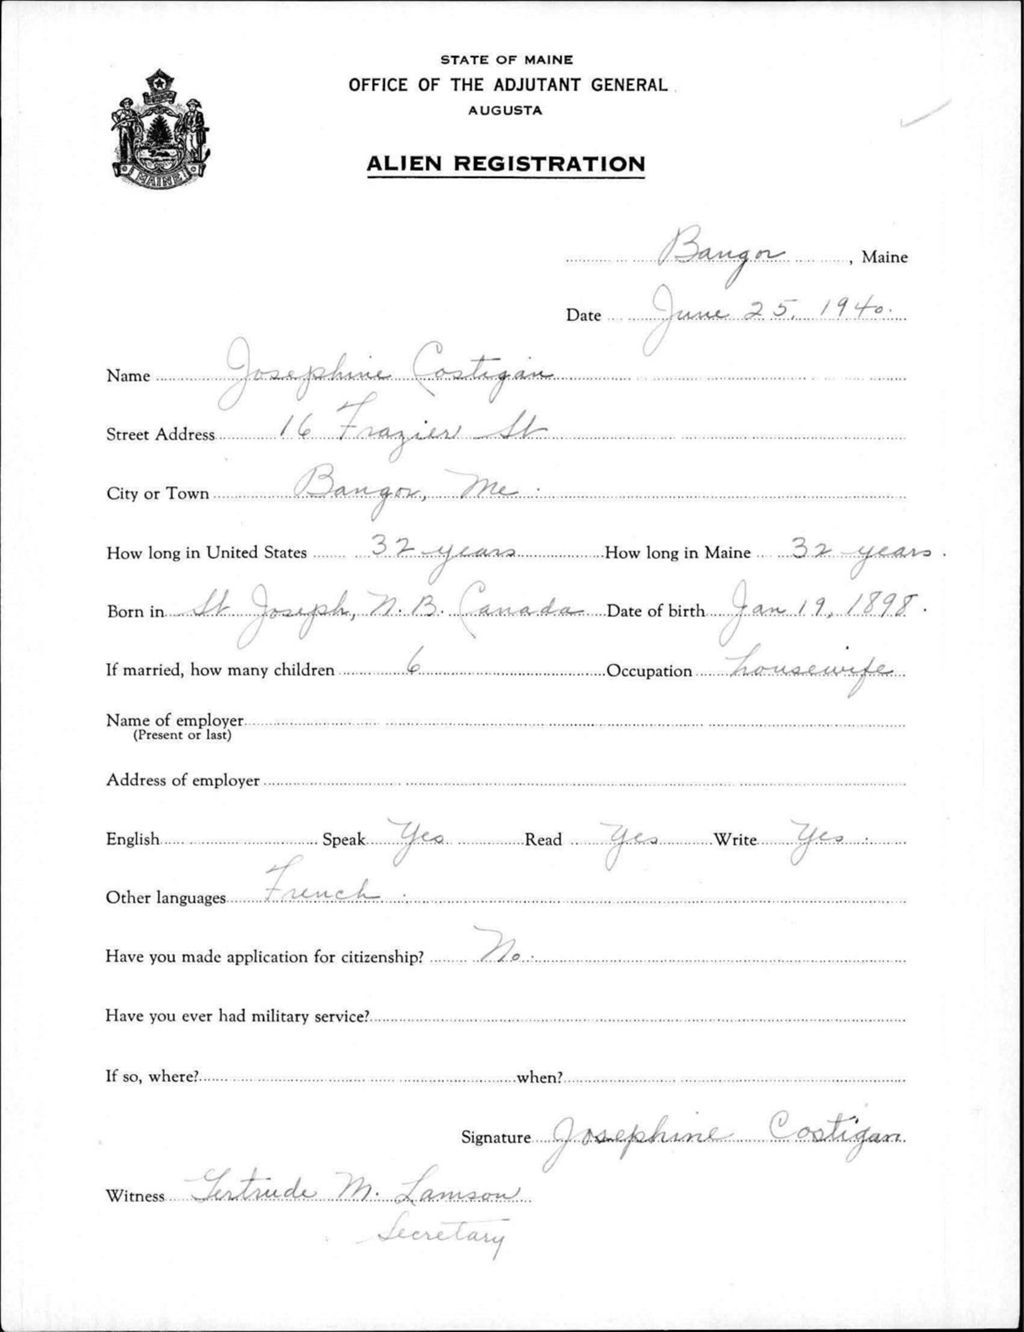 STATE OF MAINE
OFFICE OF THE ADJUTANT GENERAL
AUGUSTA
ALIEN REGISTRATION
MAINE
Bangor, Maine
Date June 25, 1940.
Name Josephine Costigan
Street Address 16 Frazier St
City or Town Bangor, Me.
How long in United States 32 years How long in Maine 32 years.
Born in St Joseph, N.B. Canada Date of birth Jan 19, 1898.
If married, how many children 6 Occupation housewife
Name of employer
(Present or last)
Address of employer
English Speak Yes Read Yes Write Yes.
Other languages French.
Have you made application for citizenship? No.
Have you ever had military service?
If so, where? when?
Signature Josephine Costigan
Witness Gertrude M. Lamson
Secretary